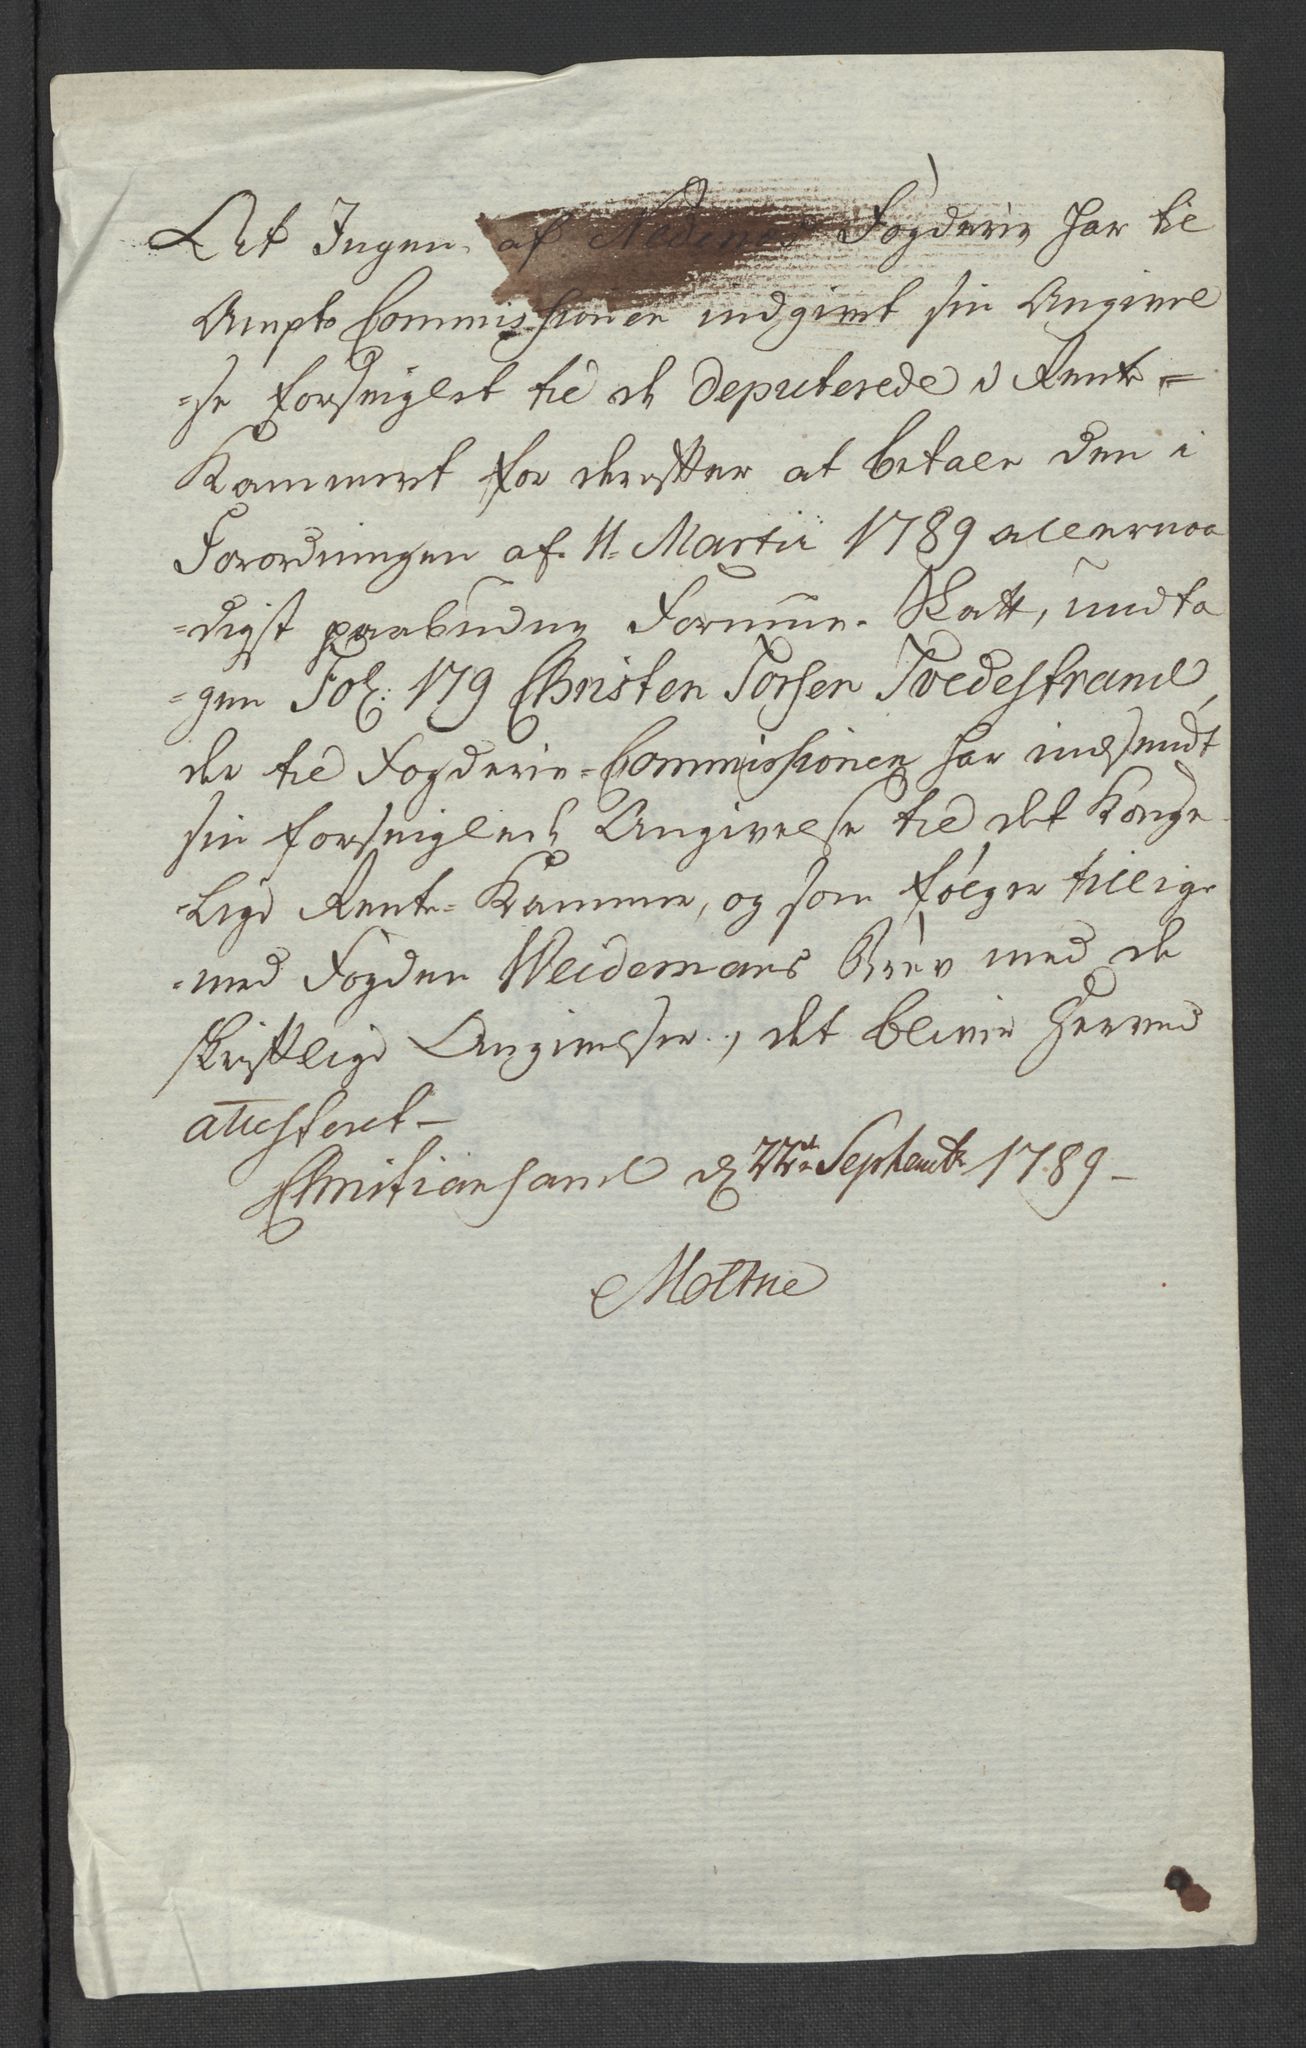 At Ingen af Nedenæs Fogderie har til
Ampts Commissionen indgivet sin Angivel
=se forseiglet til de Deputerede i Rente=
Kammeret for derefter at betale den i
Forordningen af 11. Martii 1789 allernaa
=digst paabudne Formue-Skatt, undta
=gen Fol: 179 Christen Torsen Tvedestrand,
der til Fogderie=Commissionen har indsendt
sin forseiglede Angivelse til det Konge
=lige Rente=Kammer, og som følger tillige
=med Fogden Weidemans Brev med de
skriftlige Angivelser, det bliver herved
attesteret—
Christiansand d 22de Septembr 1789—
Moltke